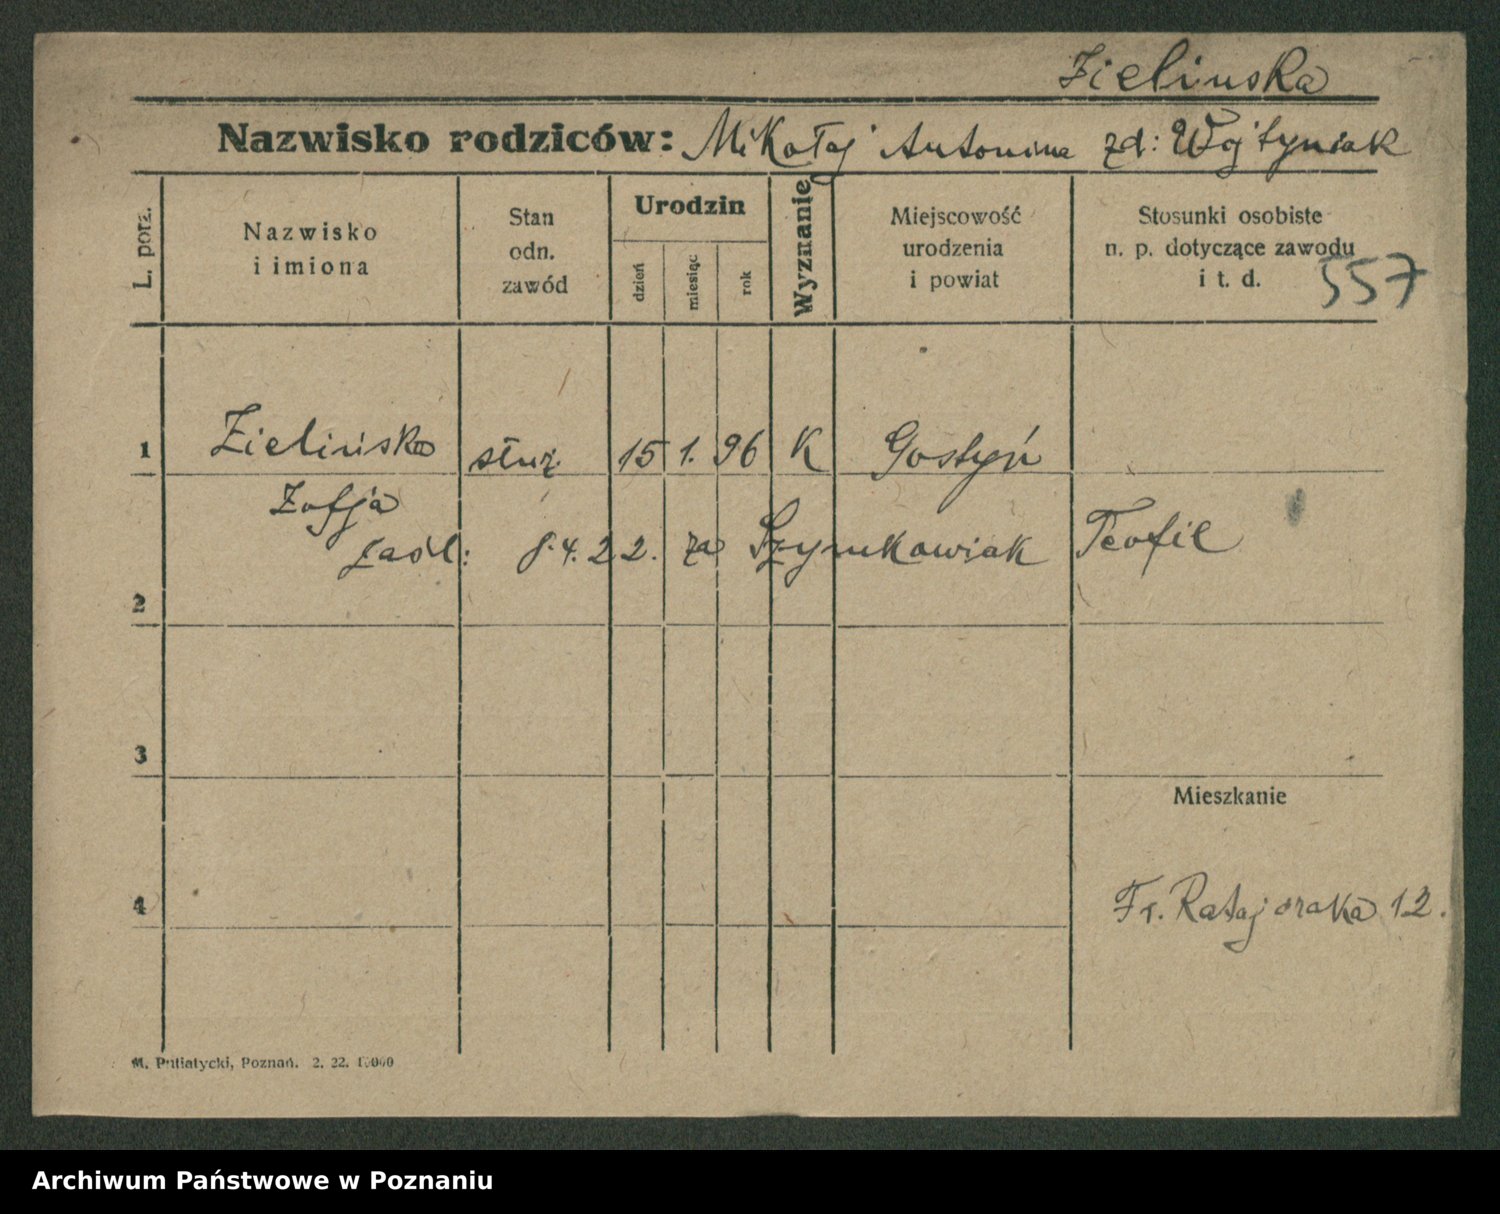 Zielinska
Nazwisko rodziców: Mikołaj Antonina zd: Wojtyniak
L. porz.
Nazwisko
i imiona
Stan
odn.
zawód
Urodzin
dzień
miesiąc
rok
Wyznanie
Miejscowość
urodzenia
i powiat
Stosunki osobiste
n. p. dotyczące zawodu
i t. d.
557
1 Zielińska służ. 15 1. 96 K Gostyń
Zofja
zaśl: 8.4.22. za Szymkowiak Teofil
2
3
Mieszkanie
4 Fr. Ratajczaka 12.
M. Putiatycki, Poznań. 2. 22. 10000
Archiwum Państwowe w Poznaniu